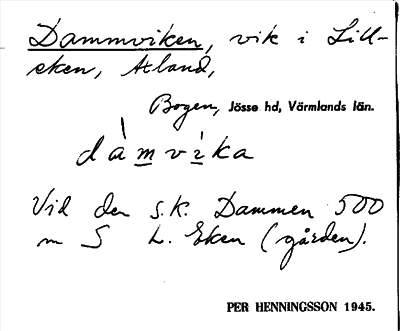 Dammviken, vik i Lill-
eken, Äland,
Bogen, Jösse hd, Värmlands län.
dàmvìka
Vid den s.k. Dammen 500
m S L. Eken (gården).
PER HENNINGSSON 1945.